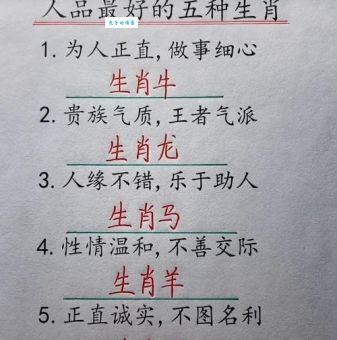 人品最好的五种生肖
1. 为人正直,做事细心
生肖牛
2. 贵族气质,王者气派
生肖龙
3. 人缘不错,乐于助人
生肖马
4. 性情温和,不善交际
生肖羊
5. 正直诚实,不图名利